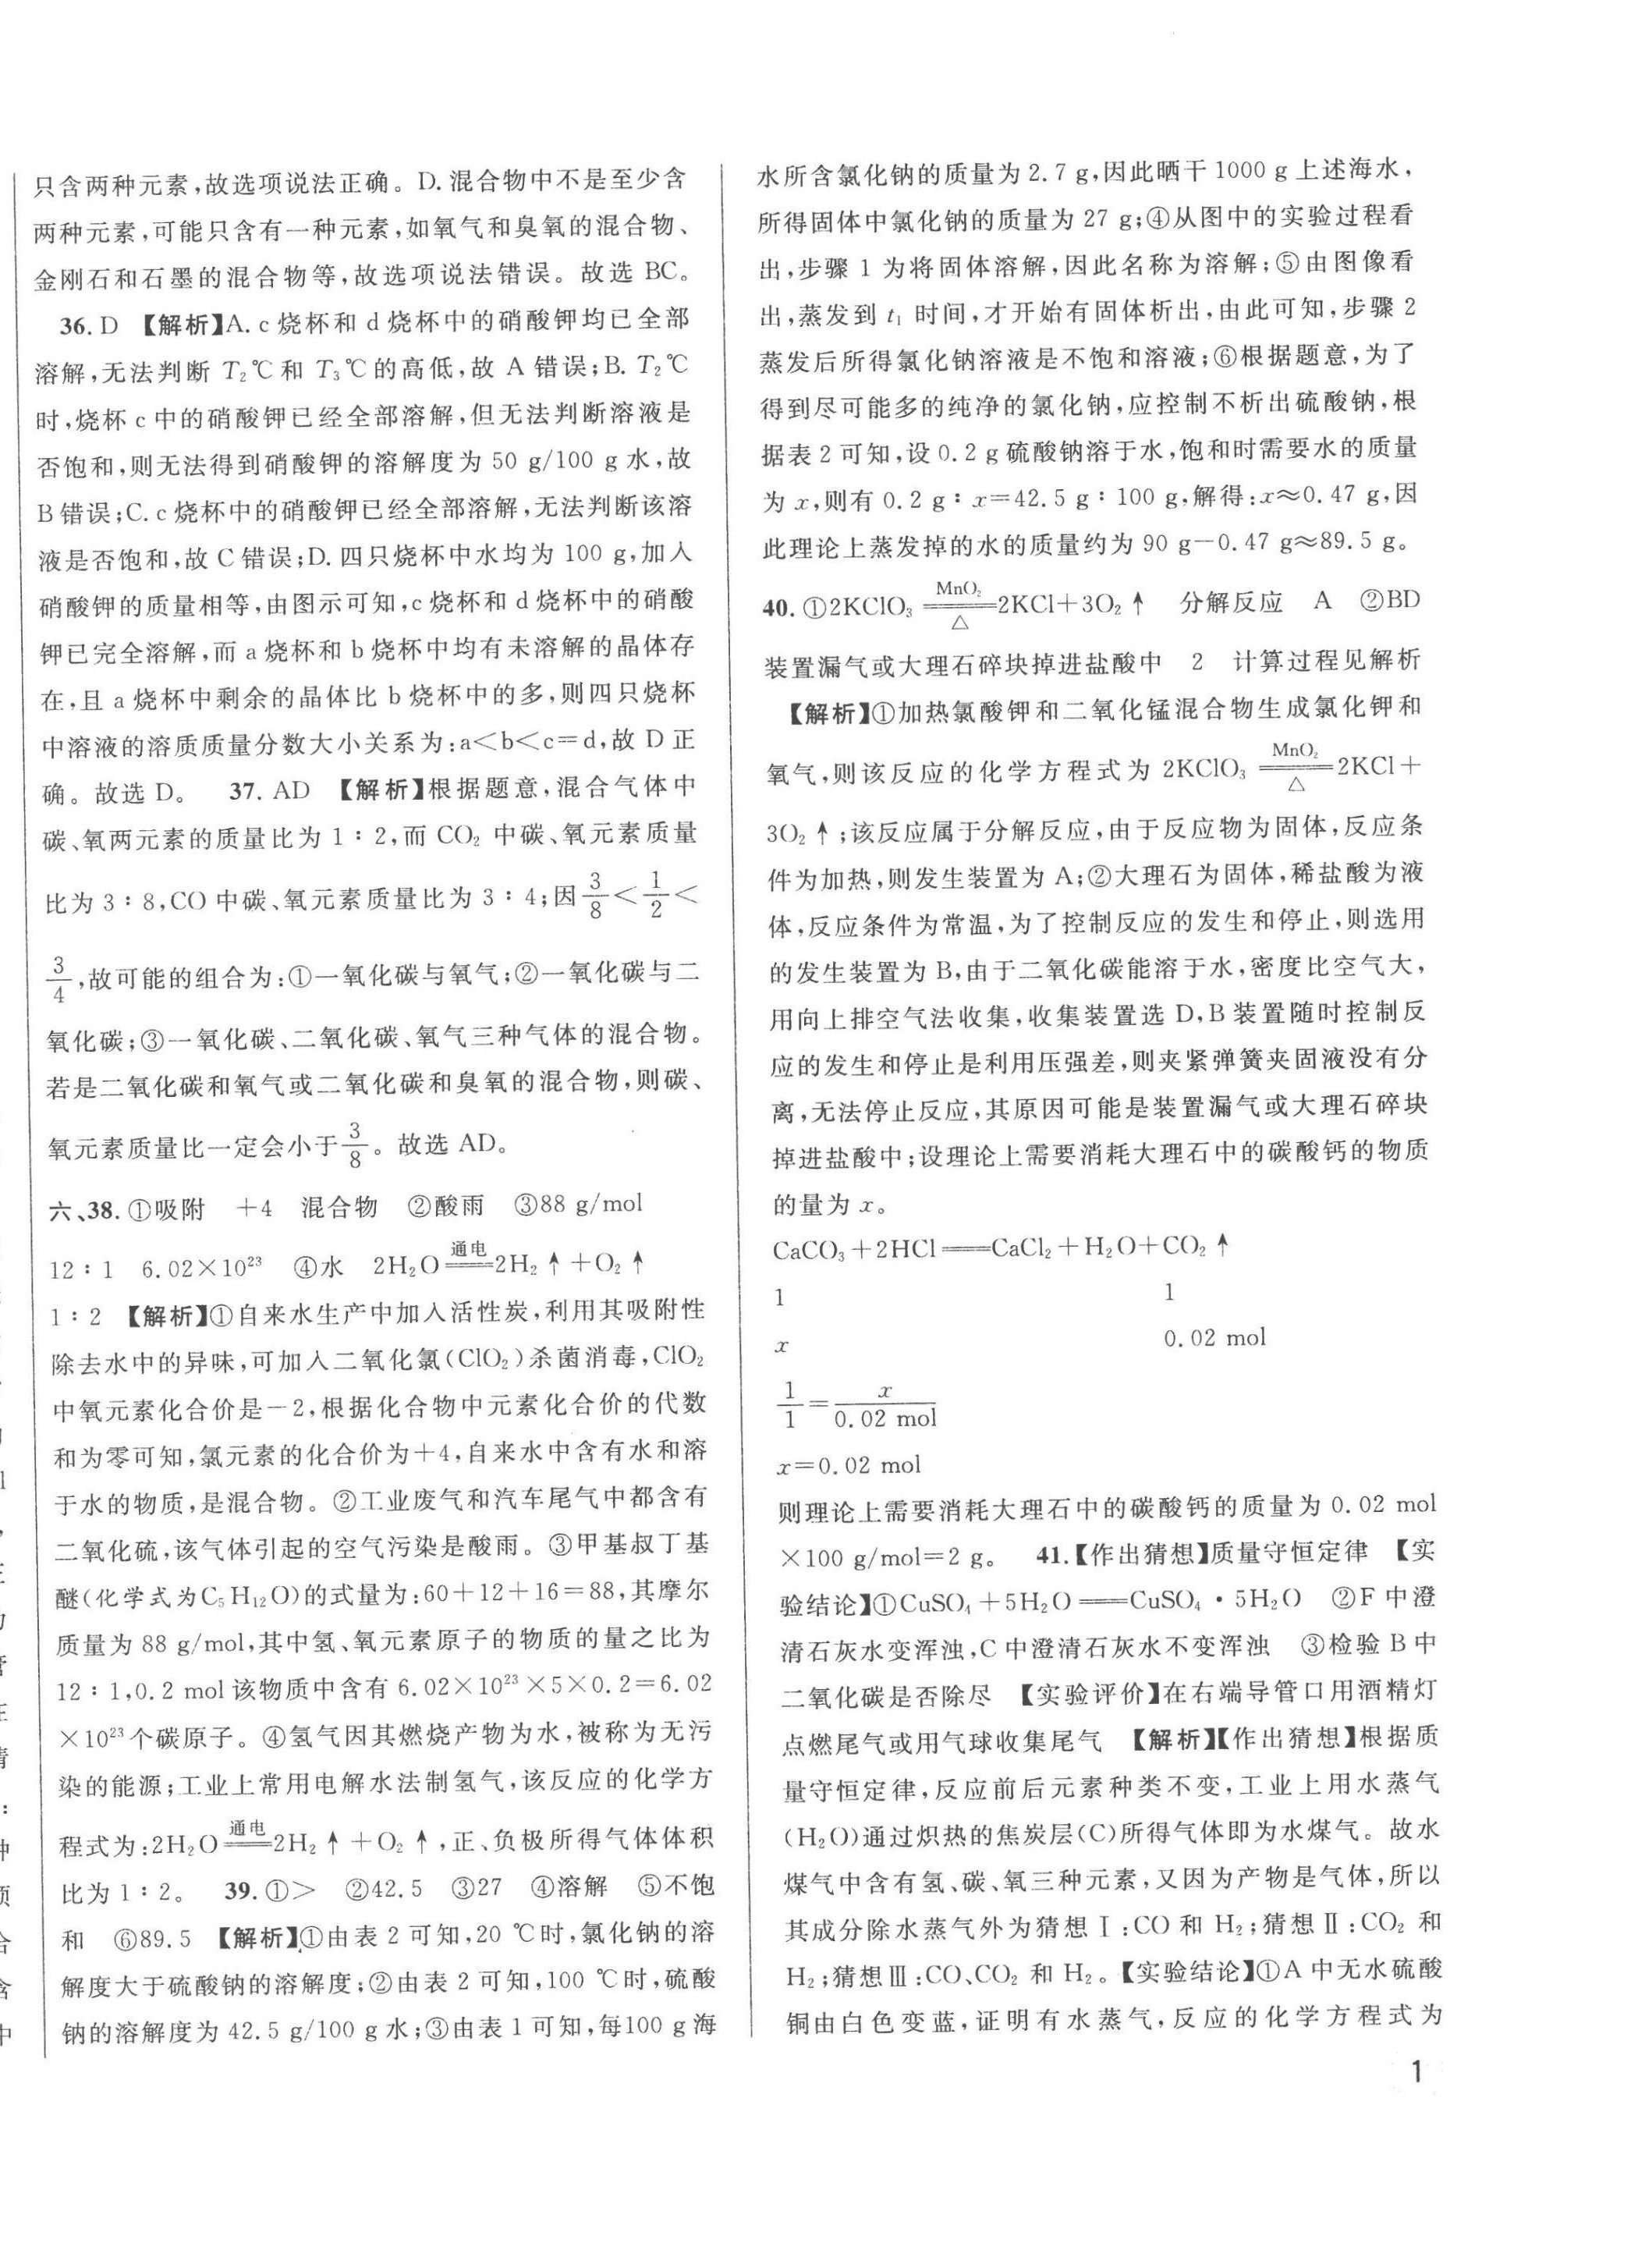 只含两种元素,故选项说法正确。D. 混合物中不是至少含
两种元素,可能只含有一种元素,如氧气和臭氧的混合物、
金刚石和石墨的混合物等,故选项说法错误。故选 BC。
36. D 【解析】A. c 烧杯和 d 烧杯中的硝酸钾均已全部
溶解,无法判断 T₂℃ 和 T₃℃ 的高低,故 A 错误;B. T₂℃
时,烧杯 c 中的硝酸钾已经全部溶解,但无法判断溶液是
否饱和,则无法得到硝酸钾的溶解度为 50 g/100 g 水,故
B 错误;C. c 烧杯中的硝酸钾已经全部溶解,无法判断该溶
液是否饱和,故 C 错误;D. 四只烧杯中水均为 100 g,加入
硝酸钾的质量相等,由图示可知,c 烧杯和 d 烧杯中的硝酸
钾已完全溶解,而 a 烧杯和 b 烧杯中均有未溶解的晶体存
在,且 a 烧杯中剩余的晶体比 b 烧杯中的多,则四只烧杯
中溶液的溶质质量分数大小关系为:a<b<c=d,故 D 正
确。故选 D。 37. AD 【解析】根据题意,混合气体中
碳、氧两元素的质量比为 1∶2,而 CO₂ 中碳、氧元素质量
比为 3∶8,CO 中碳、氧元素质量比为 3∶4;因 3/8 < 1/2 <
3/4,故可能的组合为:①一氧化碳与氧气;②一氧化碳与二
氧化碳;③一氧化碳、二氧化碳、氧气三种气体的混合物。
若是二氧化碳和氧气或二氧化碳和臭氧的混合物,则碳、
氧元素质量比一定会小于 3/8。故选 AD。
六、38. ①吸附 +4 混合物 ②酸雨 ③88 g/mol
12∶1 6.02×10²³ ④水 2H₂O ══通电══ 2H₂↑+O₂↑
1∶2 【解析】①自来水生产中加入活性炭,利用其吸附性
除去水中的异味,可加入二氧化氯(ClO₂)杀菌消毒,ClO₂
中氧元素化合价是-2,根据化合物中元素化合价的代数
和为零可知,氯元素的化合价为+4,自来水中含有水和溶
于水的物质,是混合物。②工业废气和汽车尾气中都含有
二氧化硫,该气体引起的空气污染是酸雨。③甲基叔丁基
醚(化学式为C₅H₁₂O)的式量为:60+12+16=88,其摩尔
质量为 88 g/mol,其中氢、氧元素原子的物质的量之比为
12∶1,0.2 mol 该物质中含有 6.02×10²³×5×0.2=6.02
×10²³ 个碳原子。④氢气因其燃烧产物为水,被称为无污
染的能源;工业上常用电解水法制氢气,该反应的化学方
程式为:2H₂O ══通电══ 2H₂↑+O₂↑,正、负极所得气体体积
比为 1∶2。 39. ①> ②42.5 ③27 ④溶解 ⑤不饱
和 ⑥89.5 【解析】①由表 2 可知,20 ℃时,氯化钠的溶
解度大于硫酸钠的溶解度;②由表 2 可知,100 ℃时,硫酸
钠的溶解度为 42.5 g/100 g 水;③由表 1 可知,每100 g 海
水所含氯化钠的质量为 2.7 g,因此晒干 1000 g 上述海水,
所得固体中氯化钠的质量为 27 g;④从图中的实验过程看
出,步骤 1 为将固体溶解,因此名称为溶解;⑤由图像看
出,蒸发到 t₁ 时间,才开始有固体析出,由此可知,步骤 2
蒸发后所得氯化钠溶液是不饱和溶液;⑥根据题意,为了
得到尽可能多的纯净的氯化钠,应控制不析出硫酸钠,根
据表 2 可知,设 0.2 g 硫酸钠溶于水,饱和时需要水的质量
为 x,则有 0.2 g∶x=42.5 g∶100 g,解得:x≈0.47 g,因
此理论上蒸发掉的水的质量约为 90 g-0.47 g≈89.5 g。
40. ①2KClO₃ ══MnO₂/△══ 2KCl+3O₂↑ 分解反应 A ②BD
装置漏气或大理石碎块掉进盐酸中 2 计算过程见解析
【解析】①加热氯酸钾和二氧化锰混合物生成氯化钾和
氧气,则该反应的化学方程式为 2KClO₃ ══MnO₂/△══ 2KCl+
3O₂↑;该反应属于分解反应,由于反应物为固体,反应条
件为加热,则发生装置为 A;②大理石为固体,稀盐酸为液
体,反应条件为常温,为了控制反应的发生和停止,则选用
的发生装置为 B,由于二氧化碳能溶于水,密度比空气大,
用向上排空气法收集,收集装置选 D,B 装置随时控制反
应的发生和停止是利用压强差,则夹紧弹簧夹固液没有分
离,无法停止反应,其原因可能是装置漏气或大理石碎块
掉进盐酸中;设理论上需要消耗大理石中的碳酸钙的物质
的量为 x。
CaCO₃+2HCl══CaCl₂+H₂O+CO₂↑
1 1
x 0.02 mol
1/1 = x/0.02 mol
x=0.02 mol
则理论上需要消耗大理石中的碳酸钙的质量为 0.02 mol
×100 g/mol=2 g。 41.【作出猜想】质量守恒定律 【实
验结论】①CuSO₄+5H₂O══CuSO₄·5H₂O ②F 中澄
清石灰水变浑浊,C 中澄清石灰水不变浑浊 ③检验 B 中
二氧化碳是否除尽 【实验评价】在右端导管口用酒精灯
点燃尾气或用气球收集尾气 【解析】【作出猜想】根据质
量守恒定律,反应前后元素种类不变,工业上用水蒸气
(H₂O)通过炽热的焦炭层(C)所得气体即为水煤气。故水
煤气中含有氢、碳、氧三种元素,又因为产物是气体,所以
其成分除水蒸气外为猜想Ⅰ:CO 和 H₂;猜想Ⅱ:CO₂ 和
H₂;猜想Ⅲ:CO、CO₂ 和 H₂。【实验结论】①A 中无水硫酸
铜由白色变蓝,证明有水蒸气,反应的化学方程式为
1